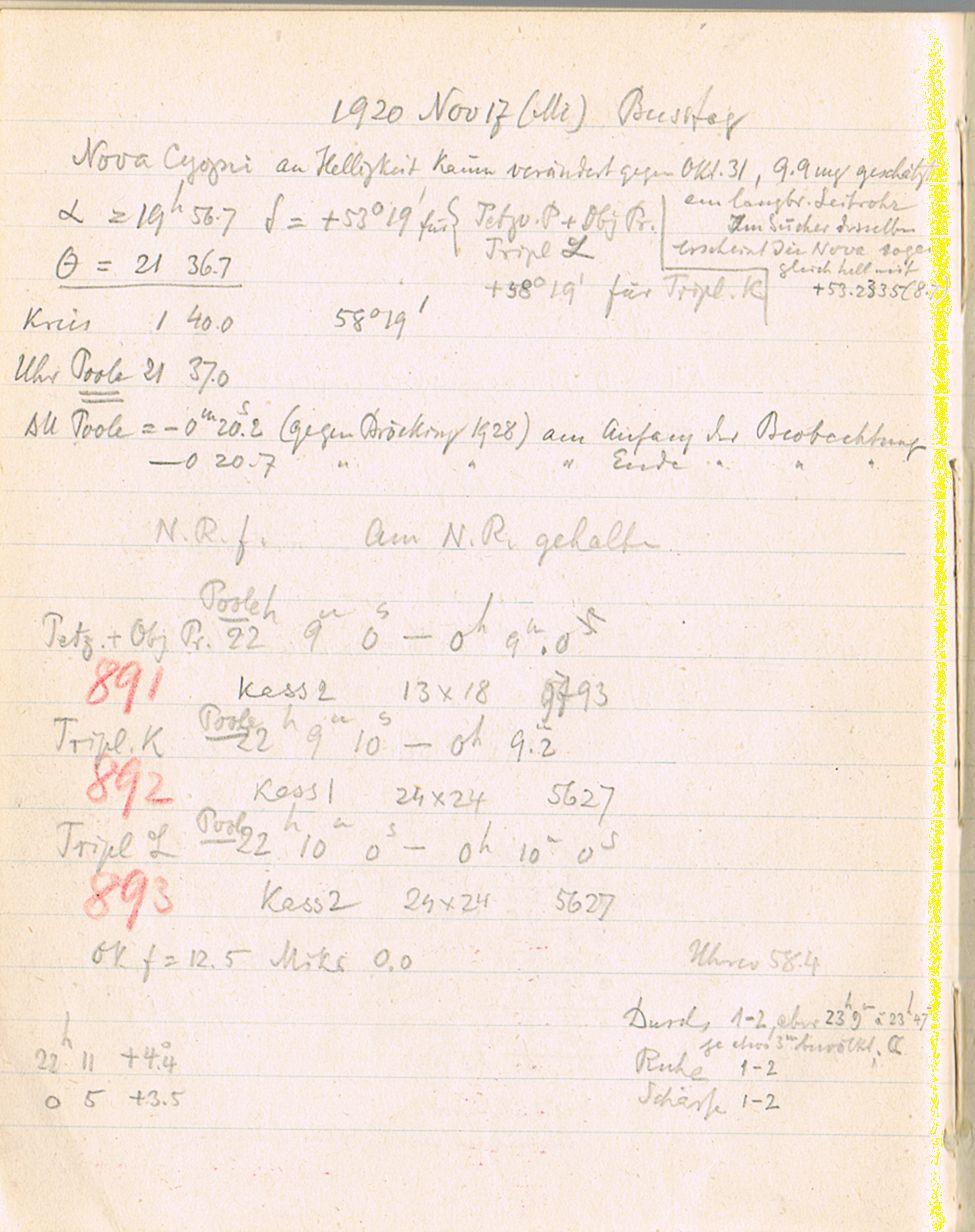 1920 Nov 17 (Mi) Busstag
Nova Cygni an Helligkeit kaum verändert gegen Okt. 31, 9.9 mg geschätzt
am langbr. Leitrohr
Im Sucher desselben
erscheint die Nova sogar
gleich hell mit
+53.2335 (8.
α = 19ʰ 56.7 δ = +53° 19' für { Petzv. P + Obj Pr.
Tripl L
Θ = 21 36.7
+58° 19' für Tripl. K
Kreis 1 40.0 58° 19'
Uhr Poole 21 37.0
ΔU Poole = -0ᵐ 20.2ˢ (gegen Bröcking 1928) am Anfang der Beobachtung
-0 20.7 " " " Ende " " "
N.R.f. Am N.R. gehalten
Petz. + Obj Pr. Poole 22ʰ 9ᵐ 0ˢ - 0ʰ 9ᵐ.0
891 Kass 2 13 x 18 93
Tripl. K Poole 22ʰ 9ᵐ 10ˢ - 0ʰ 9.ᵐ2
892 Kass 1 24 x 24 5627
Tripl L Poole 22ʰ 10ᵐ 0ˢ - 0ʰ 10ᵐ 0ˢ
893 Kass 2 24 x 24 5627
OK f = 12.5 Mikr 0.0 58.4
22ʰ 11 +4.°4
0 5 +3.5
Durchs. 1-2, aber 23ʰ 9ᵐ à 23ʰ 47
je etwa 3ᵐ bewölkt, ☾
Ruhe 1-2
Schärfe 1-2